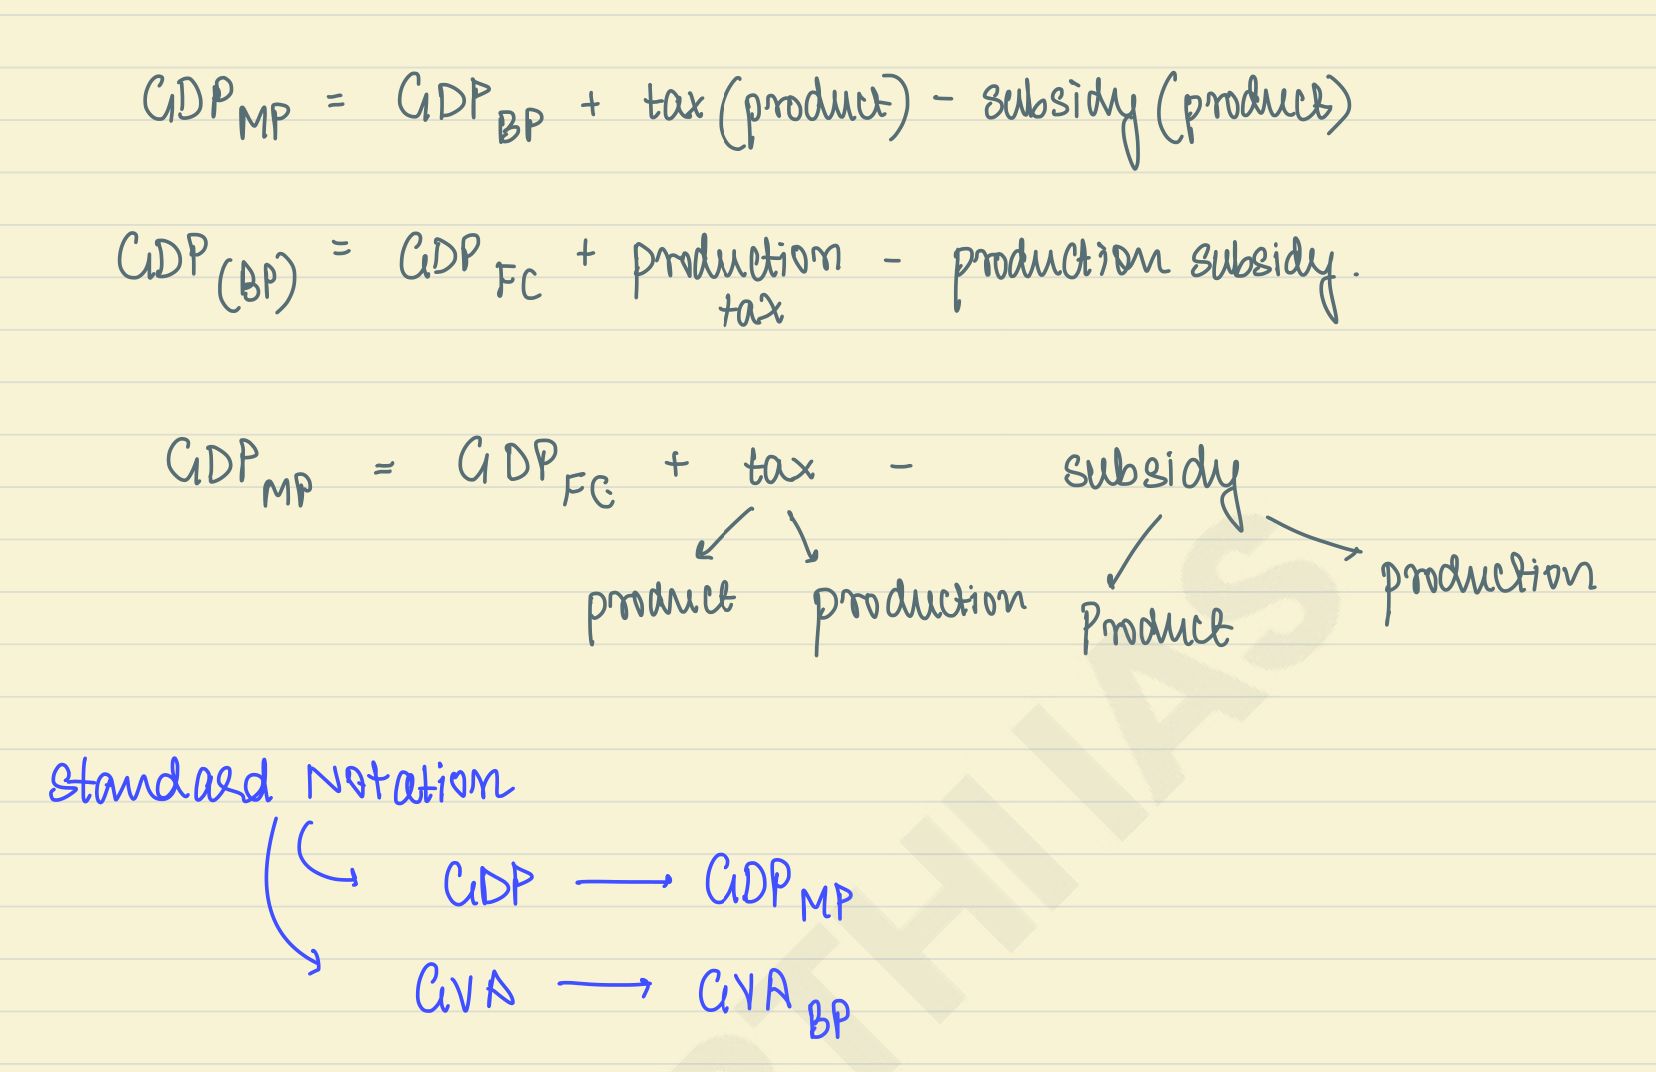 GDP MP = GDP BP + tax (product) - subsidy (product)
GDP (BP) = GDP FC + production tax - production subsidy.
GDP MP = GDP FC + tax - subsidy
product production Product production
Standard Notation
GDP → GDP MP
GVA → GVA BP
THI IAS